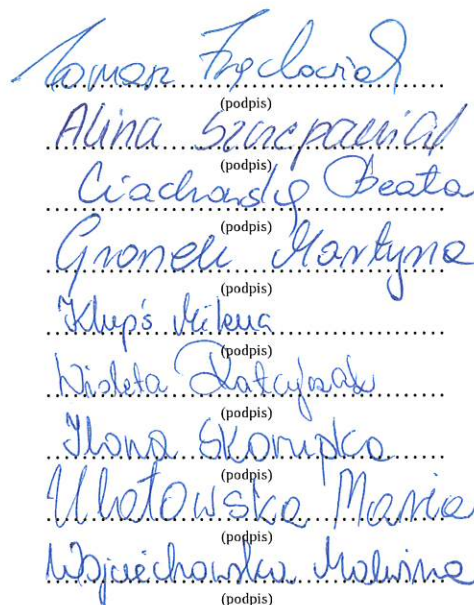 Tomasz Frąckowiak
(podpis)
Alina Szczepaniak
(podpis)
Beata
(podpis)
Gronek Martyna
(podpis)
Klupś Milena
(podpis)
Wioleta Ratajczak
(podpis)
Ilona Skorupka
(podpis)
Maria
(podpis)
Wojciechowska Malwina
(podpis)